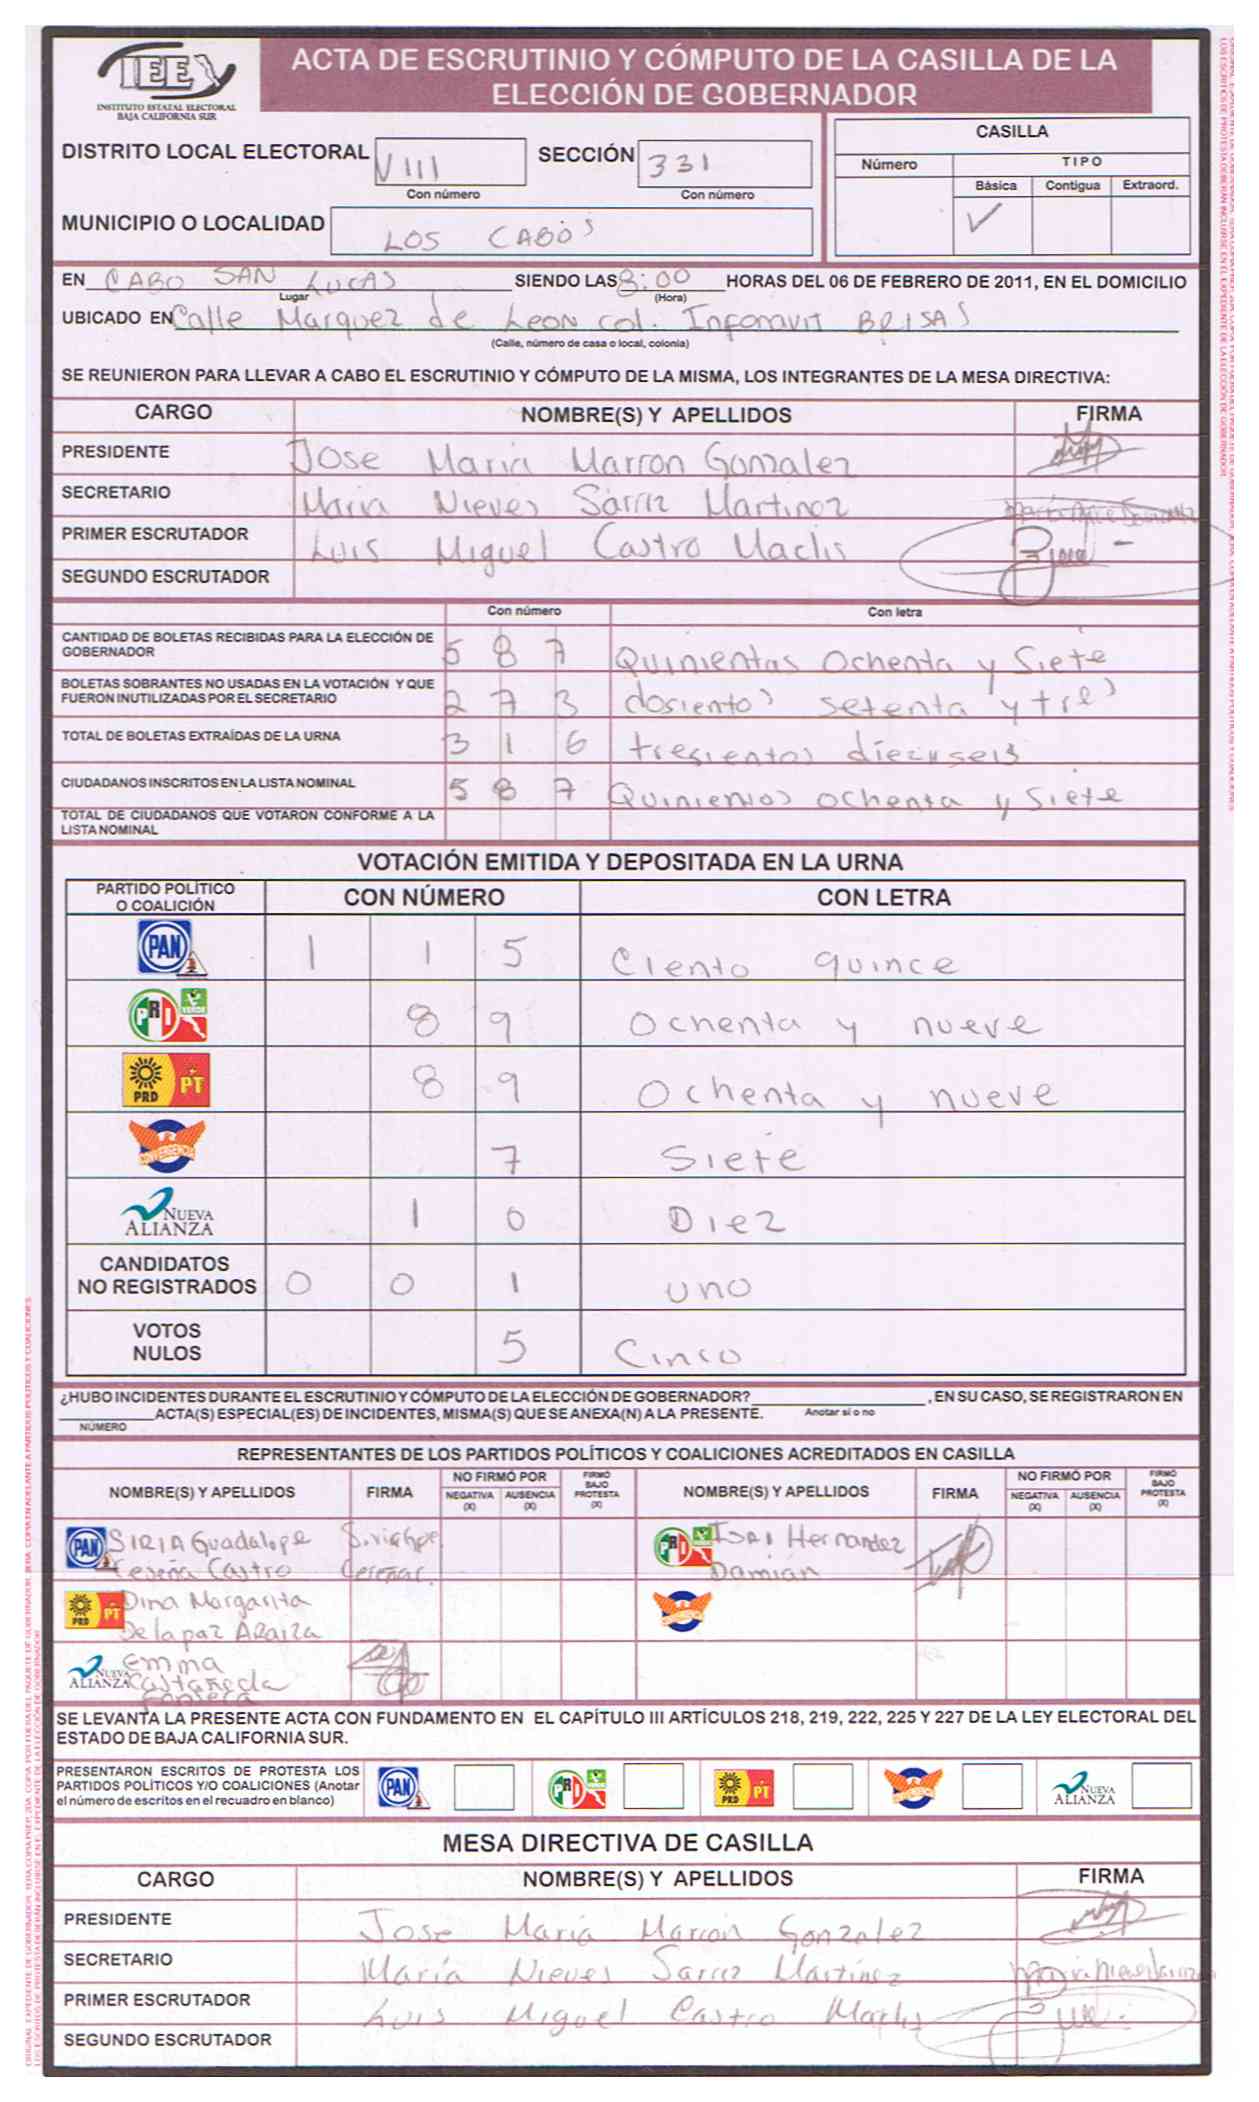 IEE
INSTITUTO ESTATAL ELECTORAL
BAJA CALIFORNIA SUR
ACTA DE ESCRUTINIO Y CÓMPUTO DE LA CASILLA DE LA
ELECCIÓN DE GOBERNADOR
DISTRITO LOCAL ELECTORAL VIII SECCIÓN 331
Con número Con número
MUNICIPIO O LOCALIDAD LOS CABOS
CASILLA
Número TIPO
Básica Contigua Extraord.
✓
EN CABO SAN LUCAS SIENDO LAS 8:00 HORAS DEL 06 DE FEBRERO DE 2011, EN EL DOMICILIO
Lugar (Hora)
UBICADO EN Calle Marquez de Leon col. Infonavit BRISAS
(Calle, número de casa o local, colonia)
SE REUNIERON PARA LLEVAR A CABO EL ESCRUTINIO Y CÓMPUTO DE LA MISMA, LOS INTEGRANTES DE LA MESA DIRECTIVA:
CARGO NOMBRE(S) Y APELLIDOS FIRMA
PRESIDENTE Jose Maria Marron Gonzalez
SECRETARIO Maria Nieves Martinez
PRIMER ESCRUTADOR Luis Miguel Castro
SEGUNDO ESCRUTADOR
Con número Con letra
CANTIDAD DE BOLETAS RECIBIDAS PARA LA ELECCIÓN DE
GOBERNADOR 5 8 7 Quinientas Ochenta y Siete
BOLETAS SOBRANTES NO USADAS EN LA VOTACIÓN Y QUE
FUERON INUTILIZADAS POR EL SECRETARIO 2 7 3 dosientos setenta y tres
TOTAL DE BOLETAS EXTRAÍDAS DE LA URNA 3 1 6 tresientos dieciseis
CIUDADANOS INSCRITOS EN LA LISTA NOMINAL 5 8 7 Quinientos ochenta y Siete
TOTAL DE CIUDADANOS QUE VOTARON CONFORME A LA
LISTA NOMINAL
VOTACIÓN EMITIDA Y DEPOSITADA EN LA URNA
PARTIDO POLÍTICO
O COALICIÓN CON NÚMERO CON LETRA
PAN 1 1 5 Ciento quince
PRI VERDE 8 9 Ochenta y nueve
PRD PT 8 9 Ochenta y nueve
CONVERGENCIA 7 Siete
NUEVA ALIANZA 1 0 Diez
CANDIDATOS
NO REGISTRADOS 0 0 1 uno
VOTOS
NULOS 5 Cinco
¿HUBO INCIDENTES DURANTE EL ESCRUTINIO Y CÓMPUTO DE LA ELECCIÓN DE GOBERNADOR? , EN SU CASO, SE REGISTRARON EN
ACTA(S) ESPECIAL(ES) DE INCIDENTES, MISMA(S) QUE SE ANEXA(N) A LA PRESENTE. Anotar si o no
NÚMERO
REPRESENTANTES DE LOS PARTIDOS POLÍTICOS Y COALICIONES ACREDITADOS EN CASILLA
NOMBRE(S) Y APELLIDOS FIRMA NO FIRMÓ POR NEGATIVA (X) AUSENCIA (X) FIRMÓ BAJO PROTESTA (X) NOMBRE(S) Y APELLIDOS FIRMA NO FIRMÓ POR NEGATIVA (X) AUSENCIA (X) FIRMÓ BAJO PROTESTA (X)
PAN SIRIA Guadalupe PRI Isai Hernandez
Ceseña Castro Damian
PRD PT Dina Margarita
De la paz Araiza
NUEVA ALIANZA Emma
Castañeda
Fonseca
SE LEVANTA LA PRESENTE ACTA CON FUNDAMENTO EN EL CAPÍTULO III ARTÍCULOS 218, 219, 222, 225 Y 227 DE LA LEY ELECTORAL DEL
ESTADO DE BAJA CALIFORNIA SUR.
PRESENTARON ESCRITOS DE PROTESTA LOS
PARTIDOS POLÍTICOS Y/O COALICIONES (Anotar
el número de escritos en el recuadro en blanco) PAN PRI VERDE PRD PT NUEVA ALIANZA
MESA DIRECTIVA DE CASILLA
CARGO NOMBRE(S) Y APELLIDOS FIRMA
PRESIDENTE José María Marrón Gonzalez
SECRETARIO María Nieves Martínez
PRIMER ESCRUTADOR Luis Miguel Castro
SEGUNDO ESCRUTADOR